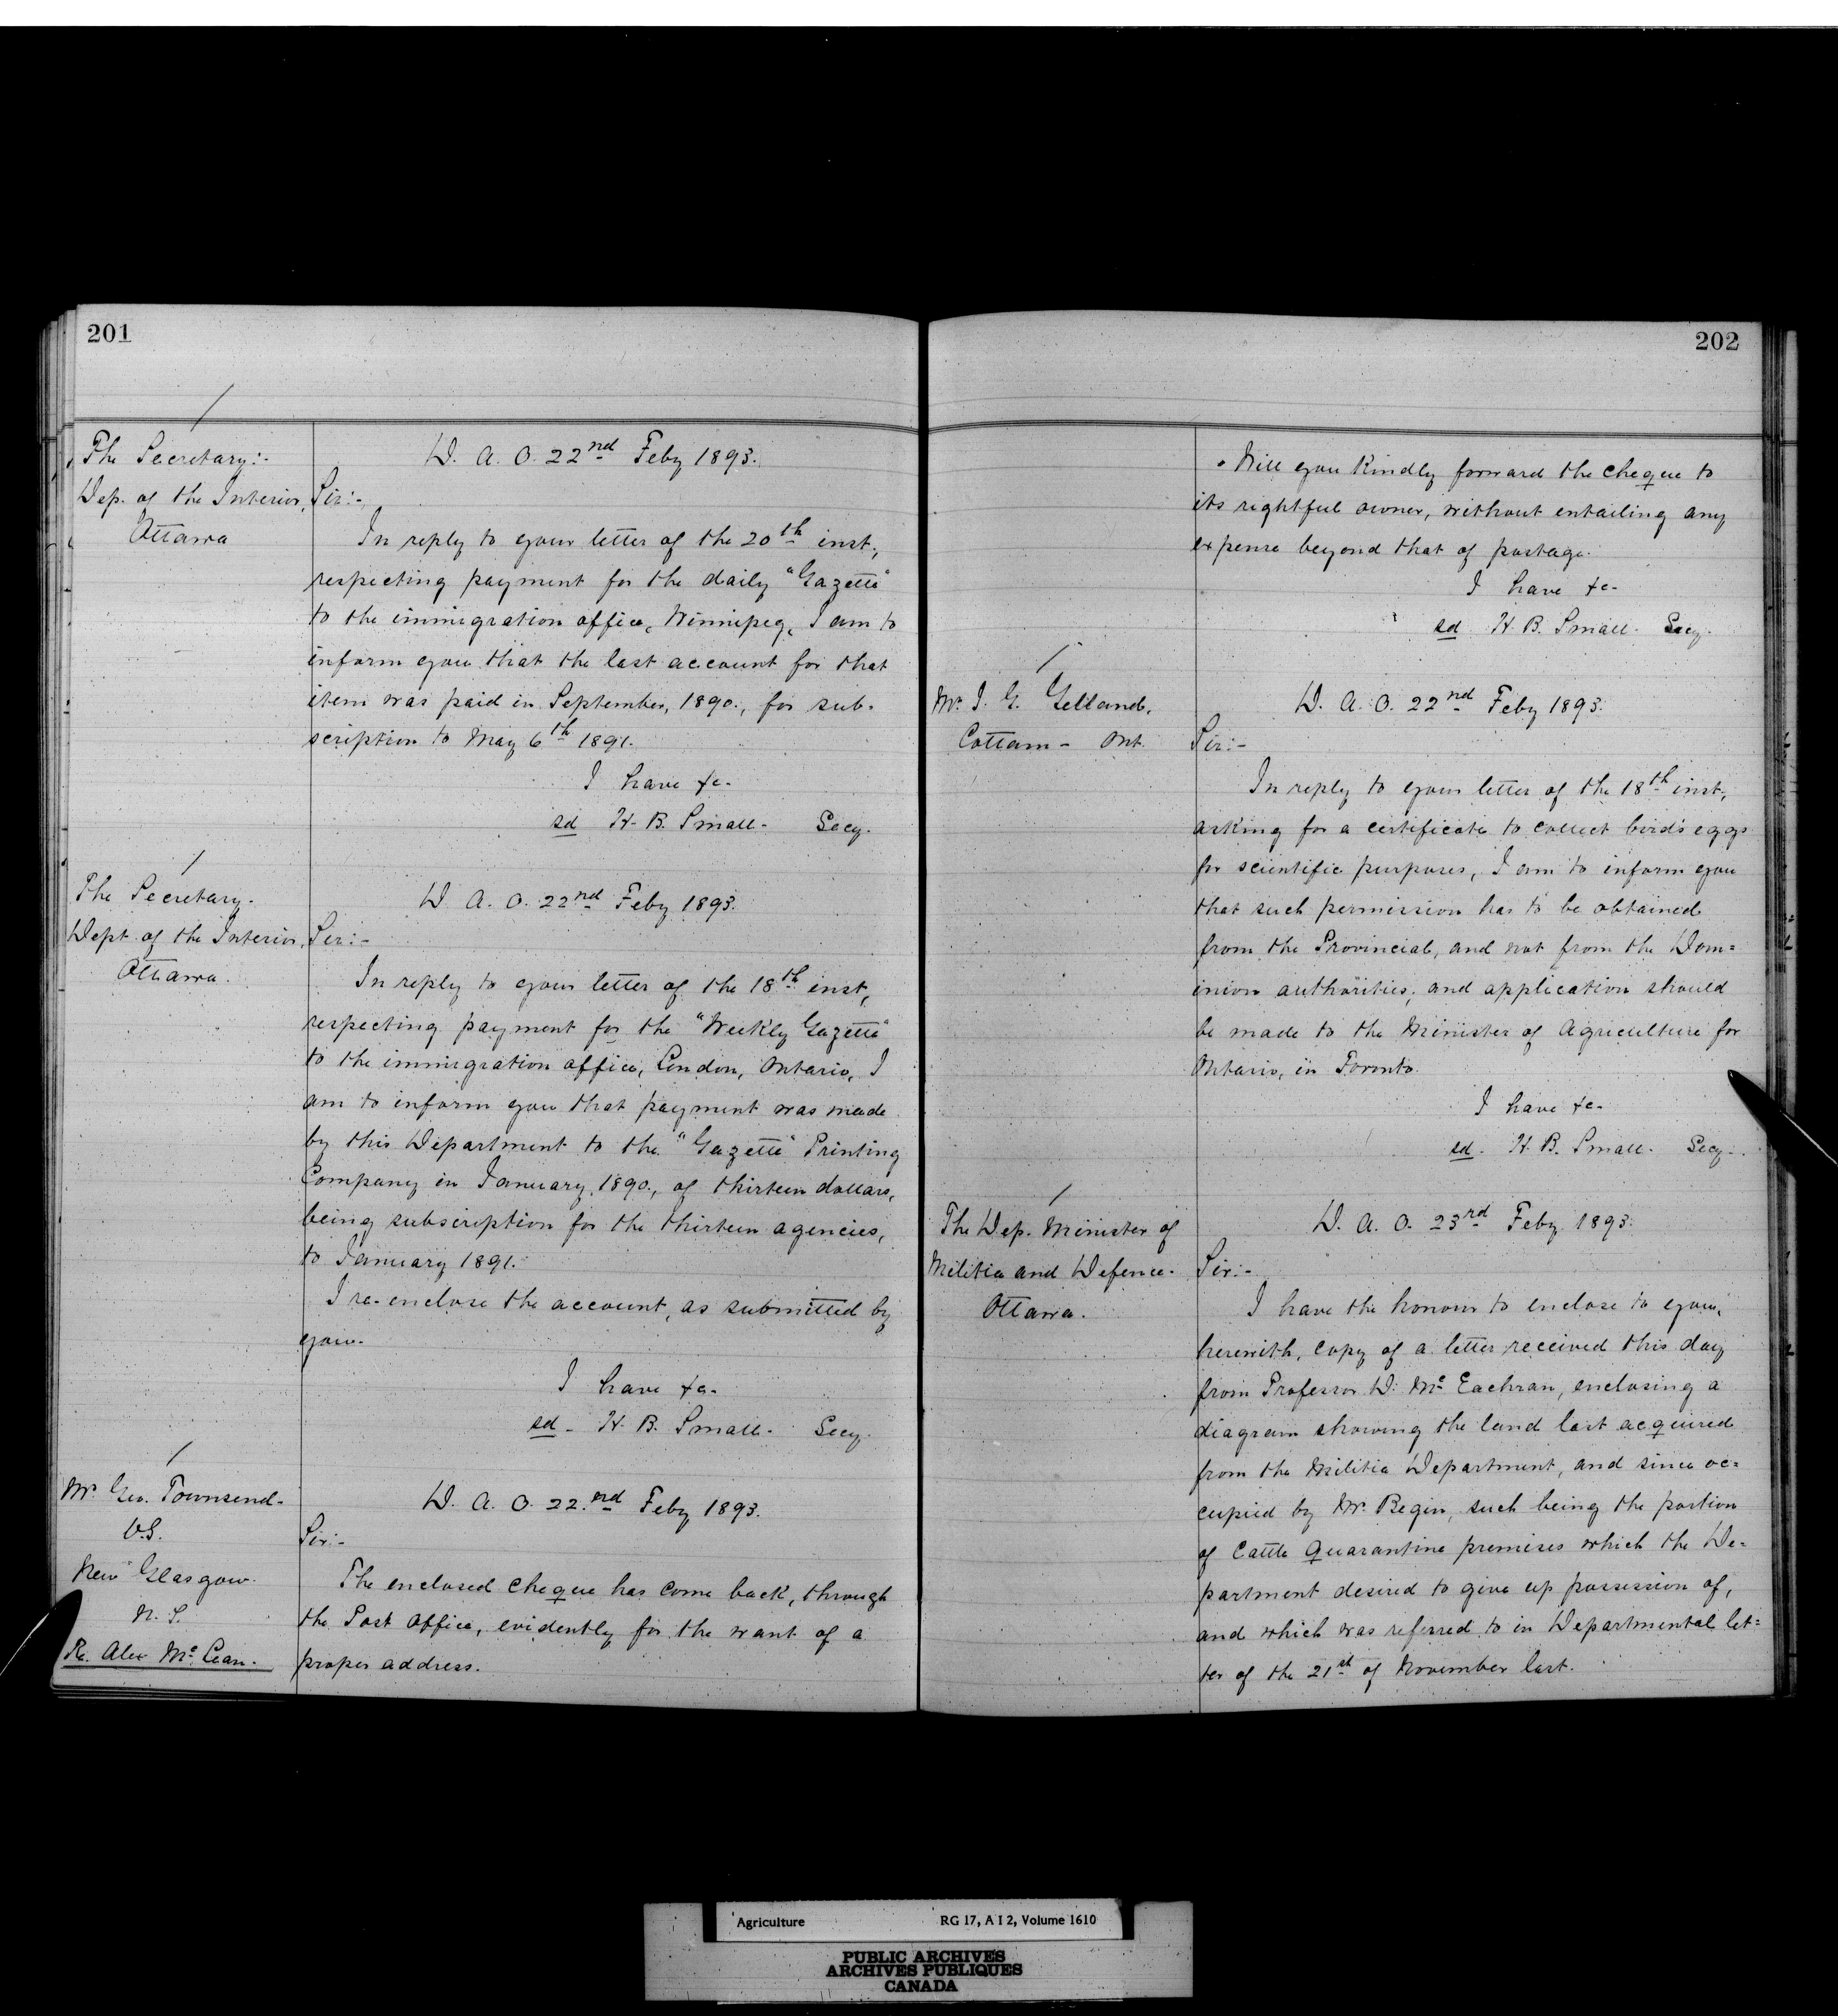 201
The Secretary:-
Dep. of the Interior,
Ottawa
D. A. O. 22nd Feby 1893.
Sir:-
In reply to your letter of the 20th inst,
respecting payment for the daily "Gazette"
to the immigration office, Winnipeg, I am to
inform you that the last account for that
item was paid in September, 1890., for sub-
scription to May 6th 1891.
I have &c-
sd H. B. Small- Secy.
The Secretary-
Dept of the Interior,
Ottawa.
D. A. O. 22nd Feby 1893.
Sir:-
In reply to your letter of the 18th inst,
respecting payment for the "Weekly Gazette"
to the immigration office, London, Ontario, I
am to inform you that payment was made
by this Department to the "Gazette" Printing
Company in January, 1890., of thirteen dollars,
being subscription for the thirteen agencies,
to January 1891.
I re-enclose the account, as submitted by
you-
I have &c-
sd- H. B. Small- Secy.
Mr. Geo. Townsend-
V.S.
New Glasgow.
N. S.
Re. Alex McLean.
D. A. O. 22nd Feby 1893.
Sir:-
The enclosed cheque has come back, through
the Post Office, evidently for the want of a
proper address.
202
Will you kindly forward the cheque to
its rightful owner, without entailing any
expense beyond that of postage.
I have &c-
sd H. B. Small- Secy.
Mr. J. G. Gelland,
Cottam - Ont.
D. A. O. 22nd Feby 1893.
Sir:-
In reply to your letter of the 18th inst,
asking for a certificate to collect bird's eggs
for scientific purposes, I am to inform you
that such permission has to be obtained
from the Provincial, and not from the Dom=
inion authorities; and application should
be made to the Minister of Agriculture for
Ontario, in Toronto.
I have &c-
sd- H. B. Small- Secy-
The Dep. Minister of
Militia and Defence-
Ottawa.
D. A. O. 23rd Feby 1893.
Sir:-
I have the honour to enclose to you,
herewith, copy of a letter received this day
from Professor D. McEachran, enclosing a
diagram showing the land last acquired
from the Militia Department, and since oc=
cupied by Mr. Begin, such being the portion
of Cattle Quarantine premises which the De=
partment desired to give up possession of,
and which was referred to in Departmental let=
ter of the 21st of November last.
Agriculture RG 17, A I 2, Volume 1610
PUBLIC ARCHIVES
ARCHIVES PUBLIQUES
CANADA